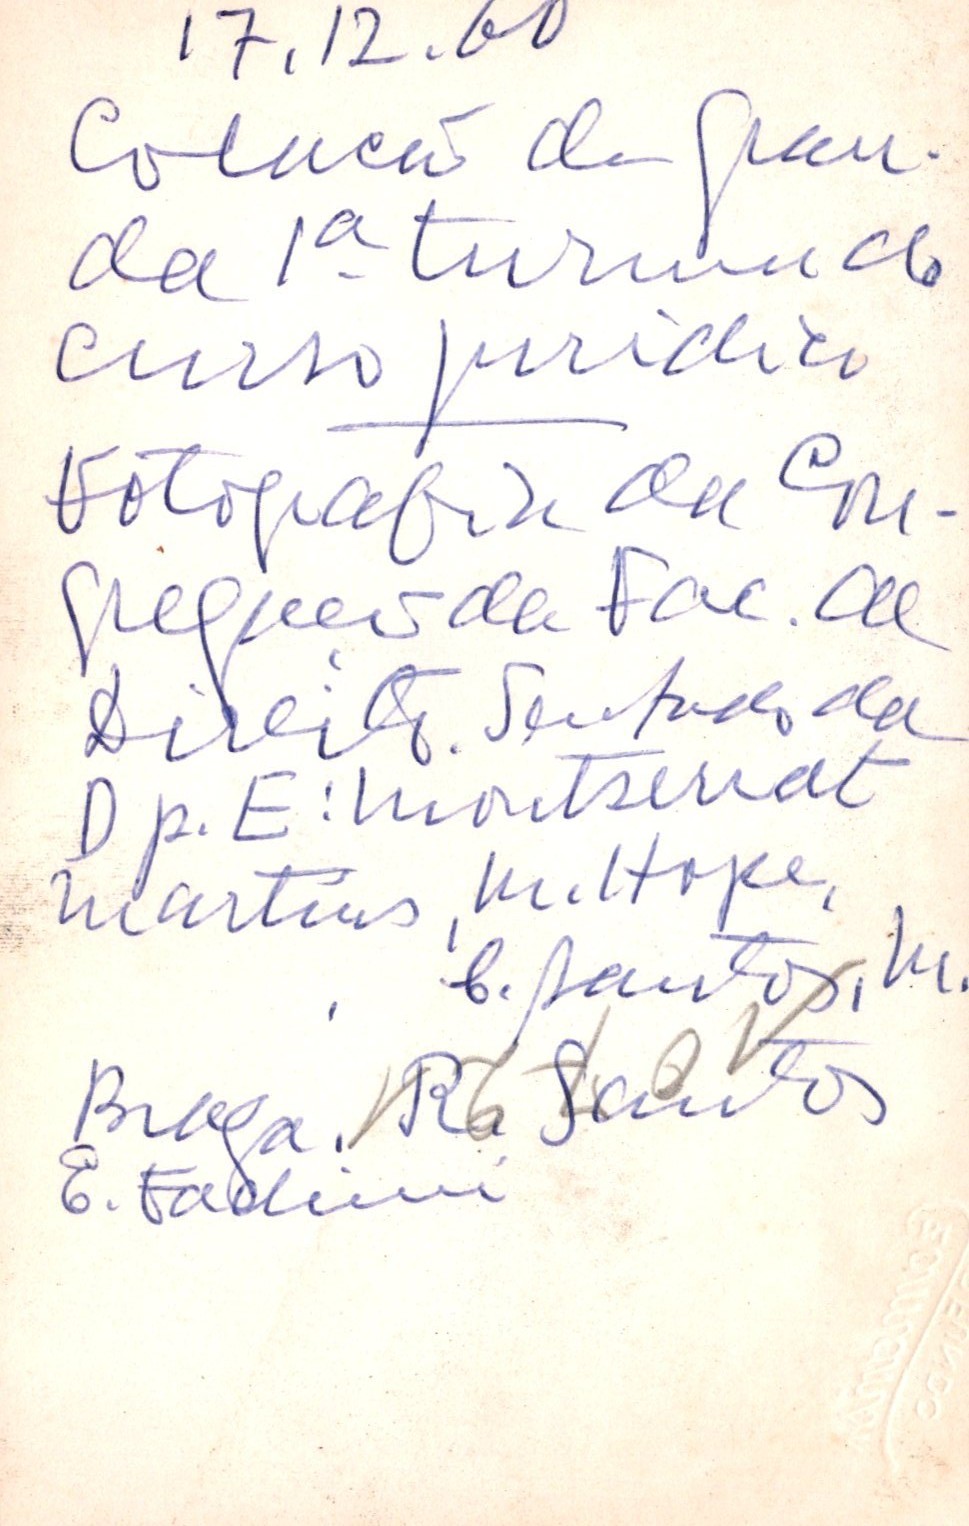 17.12.60
Colação de grau.
da 1ª turma do
curso jurídico
Fotografia da Con-
gregação da Fac. de
Direito. Sentados da
D p. E: Montserrat
Martins, M. Hope,
, C. Santos, M.
Braga, R. Santos
E. Fadini